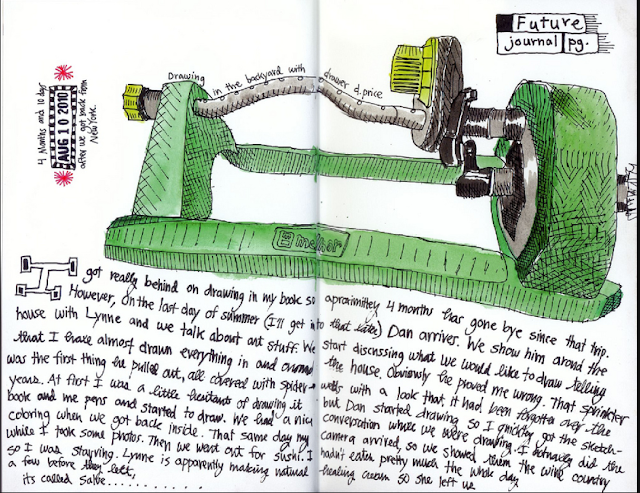 Future
journal pg.
Drawing in the backyard with drawer d.price
4 Months and 10 days
AUG 10 2010
after we got back from
New York.
melnor
I got really behind on drawing in my book so aproximitly 4 months has gone bye since that trip.
However, on the last day of summer (I'll get into that later) Dan arrives. We show him around the
house with Lynne and we talk about art stuff. We start discussing what we would like to draw telling
that I have almost drawn everything in and around the house. Obviously he proved me wrong. That sprinkler
was the first thing he pulled out, all covered with spider-webs with a look that it had been forgotten over the
years. At first I was a little hesitant of drawing it but Dan started drawing so I quickly got the sketch-
book and me pens and started to draw. We had a nice conversation while we were drawing. I actually did the
coloring when we got back inside. That same day my camera arrived, so we showed them the wine country
while I took some photos. Then we went out for sushi. I hadn't eaten pretty much the whole day
so I was starving. Lynne is apparently making natural healing cream so she left us
a few before they left,
its called Salve............